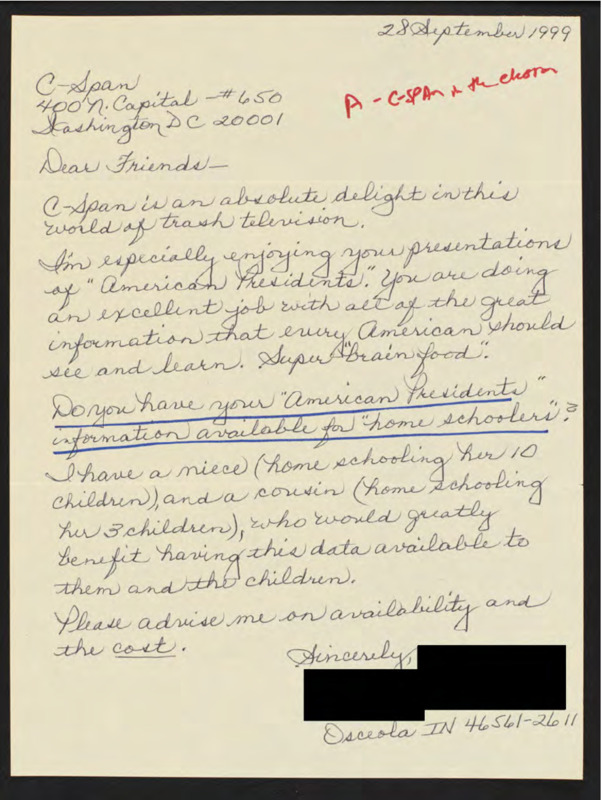 28 September 1999
C-Span
400 N. Capital - #650
Washington DC 20001
A - C-SPAN in the
Dear Friends—
C-Span is an absolute delight in this
world of trash television.
I'm especially enjoying your presentations
of "American Presidents". You are doing
an excellent job with all of the great
information that every American should
see and learn. Super "brain food".
Do you have your "American Presidents"
information available for "home schoolers"?
I have a niece (home schooling her 10
children), and a cousin (home schooling
her 3 children), who would greatly
benefit having this data available to
them and the children.
Please advise me on availability and
the cost.
Sincerely,
Osceola IN 46561-2611